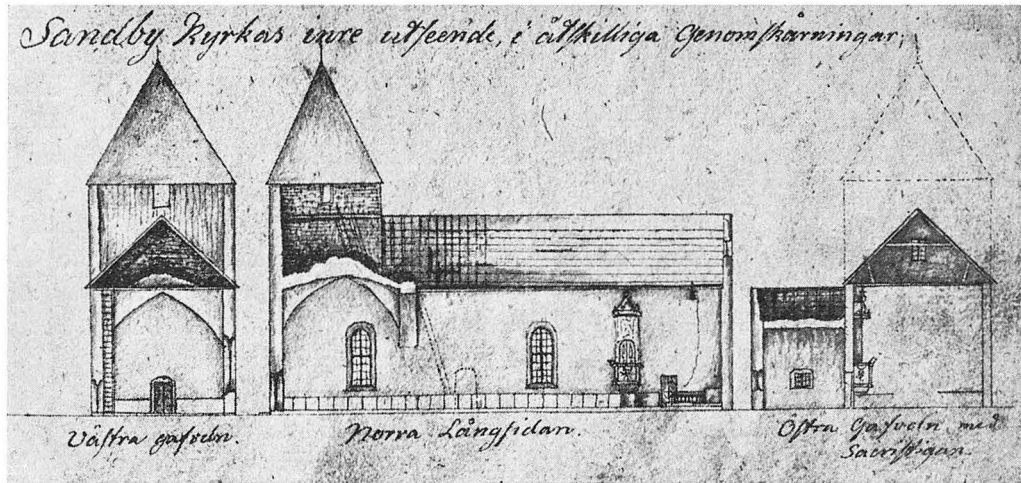 Sandby Kyrkas inre utseende, i åtskilliga Genomskärningar,
Västra gafveln.
Norra Långsidan.
Östra Gafveln med
Sacristigan.